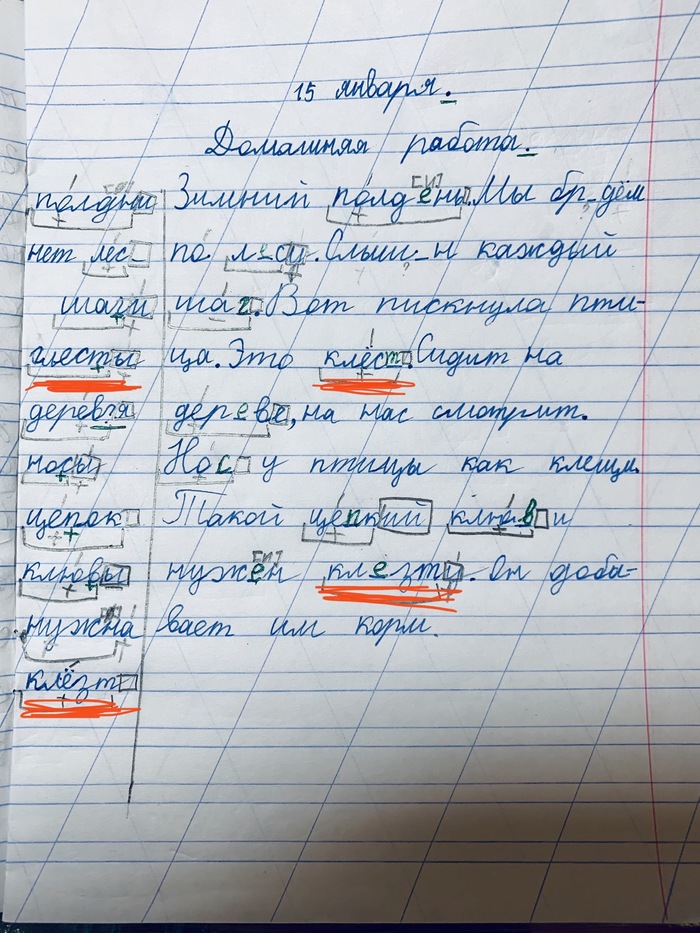 15 января.
Домашняя работа.
полдни Зимний полдень. Мы бр_дём
нет лес_ по лесу. Слыш_н каждый
шаги шаг. Вот пискнула пти-
глесты ца. Это клёст. Сидит на
деревья дереве, на нас смотрит.
носы Нос у птицы как клещи.
цепок Такой цепкий клюв и
клювы нужен клезту. Он добы-
нужна вает им корм.
клёзт